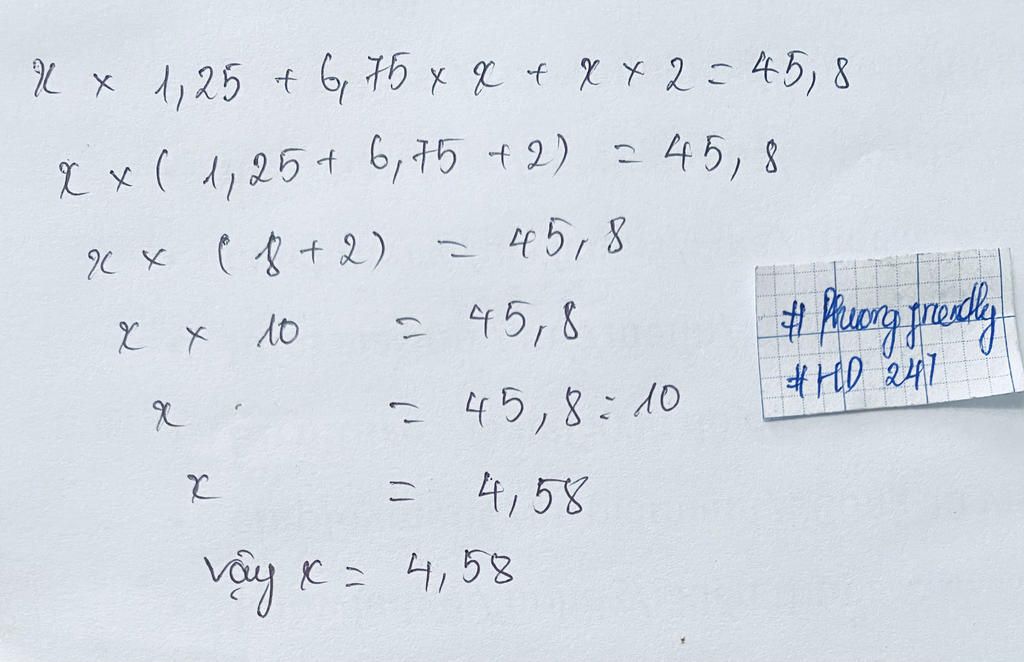 x × 1,25 + 6,75 × x + x × 2 = 45,8
x × ( 1,25 + 6,75 + 2) = 45,8
x × ( 8 + 2) = 45,8
x × 10 = 45,8
x = 45,8 : 10
x = 4,58
Vậy x = 4,58
# Phuong friendly
# HD 247